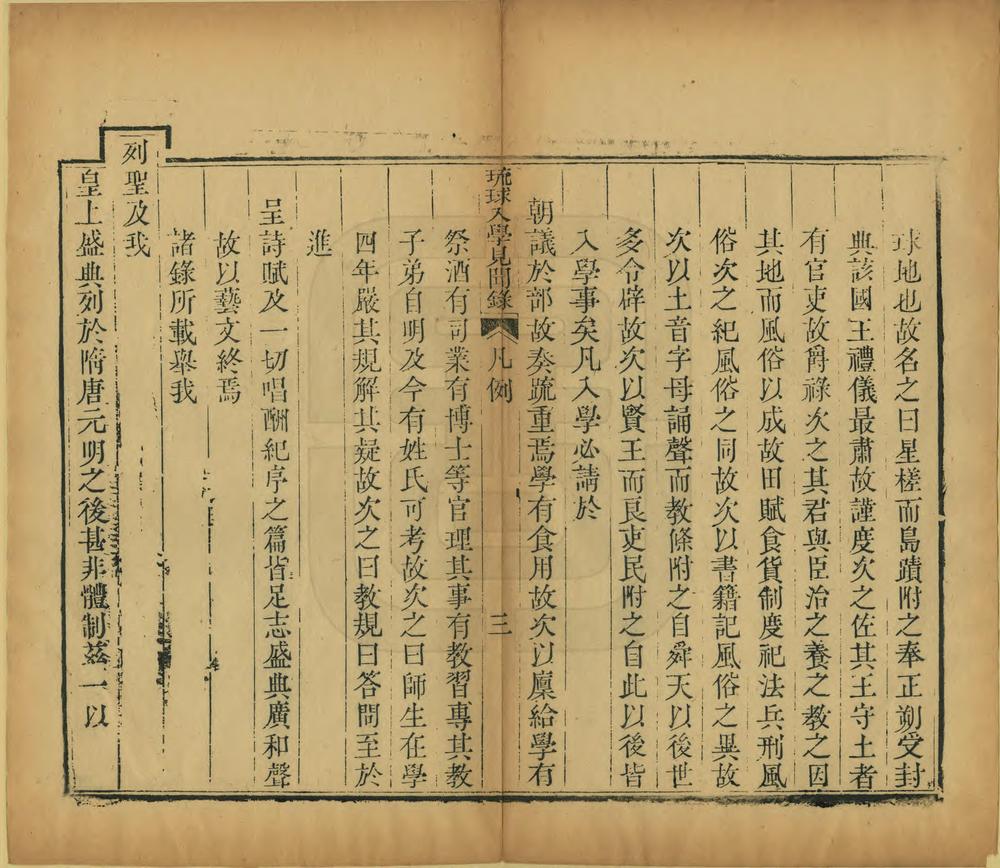 球地也故名之曰星槎而島蹟附之奉正朔受封
典該國王禮儀最肅故謹度次之佐其王守土者
有官吏故爵祿次之其君與臣治之養之教之因
其地而風俗以成故田賦食貨制度祀法兵刑風
俗次之紀風俗之同故次以書籍記風俗之異故
次以土音字母誦聲而教條附之自舜天以後世
多令辟故次以賢王而良吏民附之自此以後皆
入學事矣凡入學必請於
朝議於部故奏疏重焉學有食用故次以廩給學有
琉球入學見聞錄 凡例 三
祭酒有司業有博士等官理其事有教習專其教
子弟自明及今有姓氏可考故次之曰師生在學
四年嚴其規解其疑故次之曰教規曰答問至於
進
呈詩賦及一切唱酬紀序之篇皆足志盛典廣和聲
故以藝文終焉
諸錄所載舉我
列聖及我
皇上盛典列於隋唐元明之後甚非體制茲一以